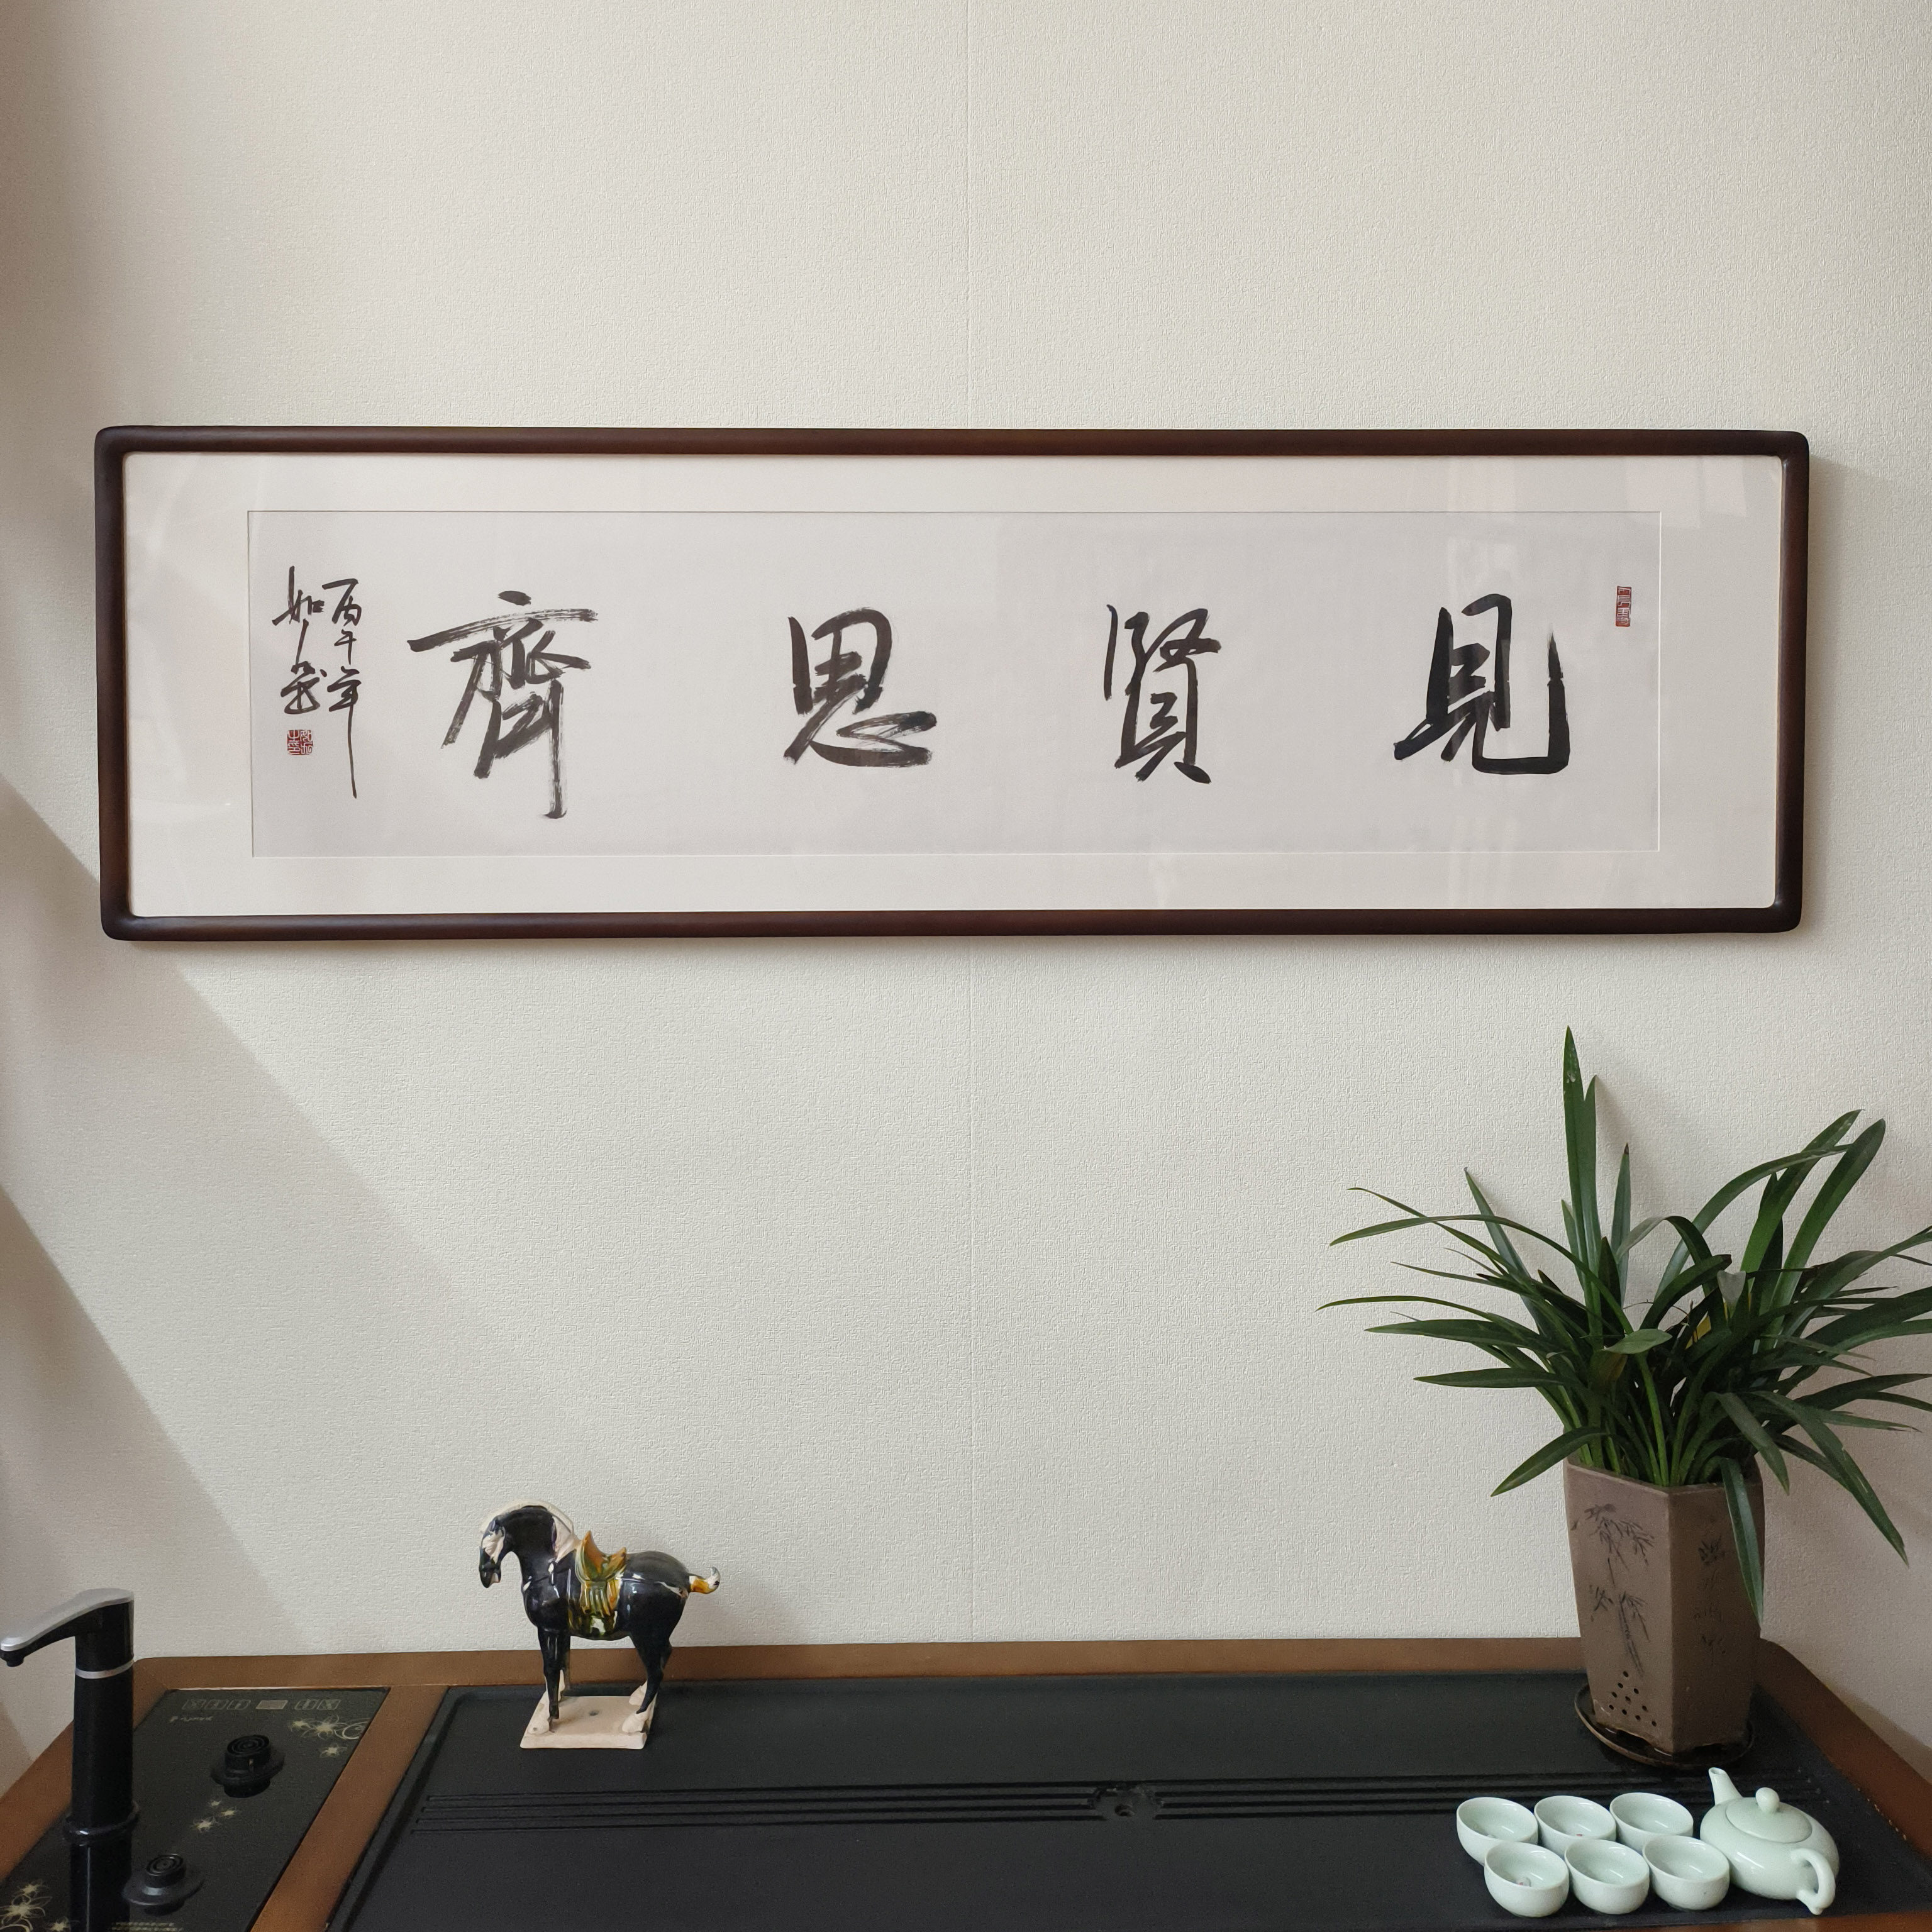 見賢思齊
丙午年
如